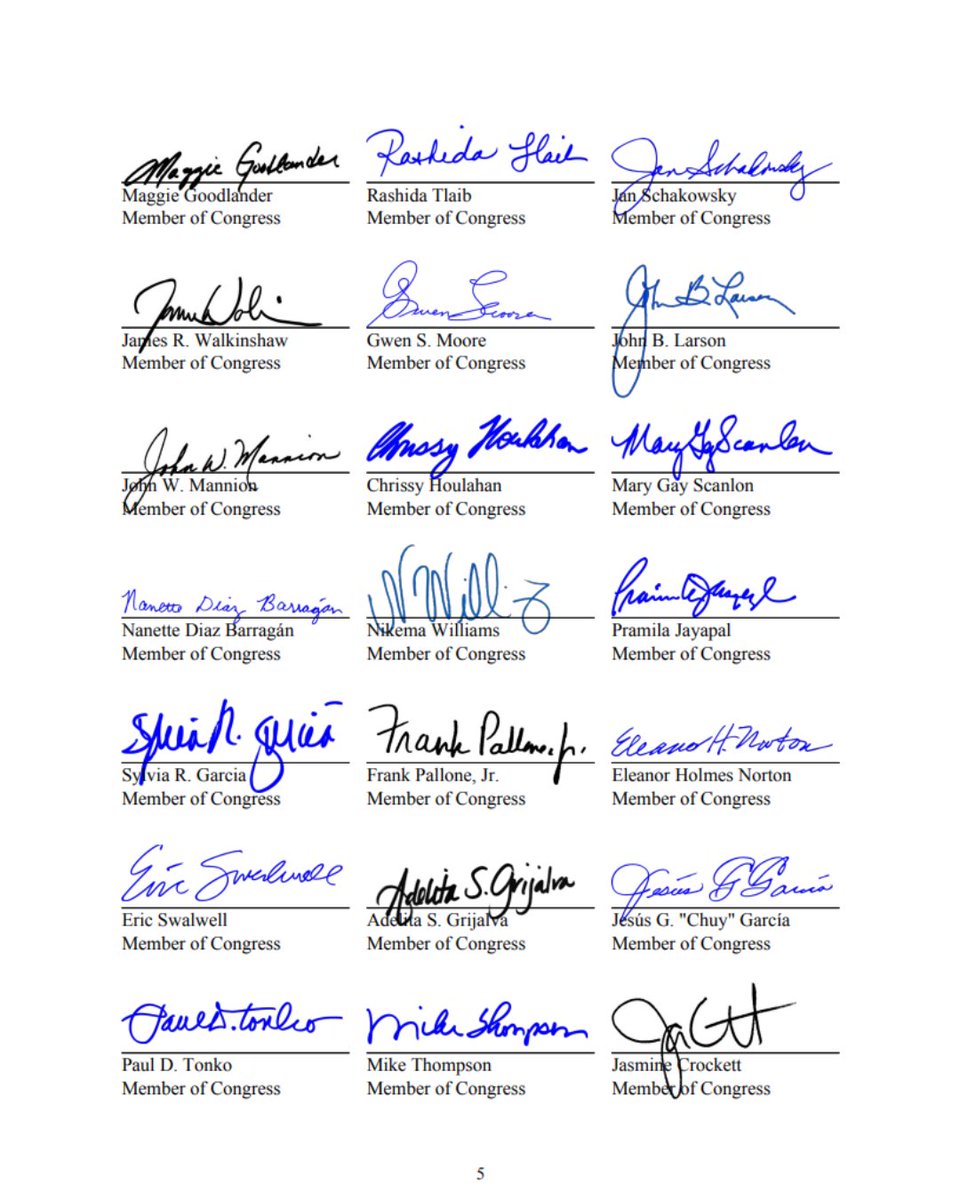 Maggie Goodlander Rashida Tlaib Jan Schakowsky
Maggie Goodlander Rashida Tlaib Jan Schakowsky
Member of Congress Member of Congress Member of Congress
Gwen Moore John B. Larson
James R. Walkinshaw Gwen S. Moore John B. Larson
Member of Congress Member of Congress Member of Congress
John W. Mannion Chrissy Houlahan Mary Gay Scanlon
John W. Mannion Chrissy Houlahan Mary Gay Scanlon
Member of Congress Member of Congress Member of Congress
Nanette Diaz Barragán
Nanette Diaz Barragán Nikema Williams Pramila Jayapal
Member of Congress Member of Congress Member of Congress
Sylvia R. Garcia Frank Pallone, Jr. Eleanor H. Norton
Sylvia R. Garcia Frank Pallone, Jr. Eleanor Holmes Norton
Member of Congress Member of Congress Member of Congress
Eric Swalwell Adelita S. Grijalva Jesús G García
Eric Swalwell Adelita S. Grijalva Jesús G. "Chuy" García
Member of Congress Member of Congress Member of Congress
Paul D. Tonko Mike Thompson
Paul D. Tonko Mike Thompson Jasmine Crockett
Member of Congress Member of Congress Member of Congress
5